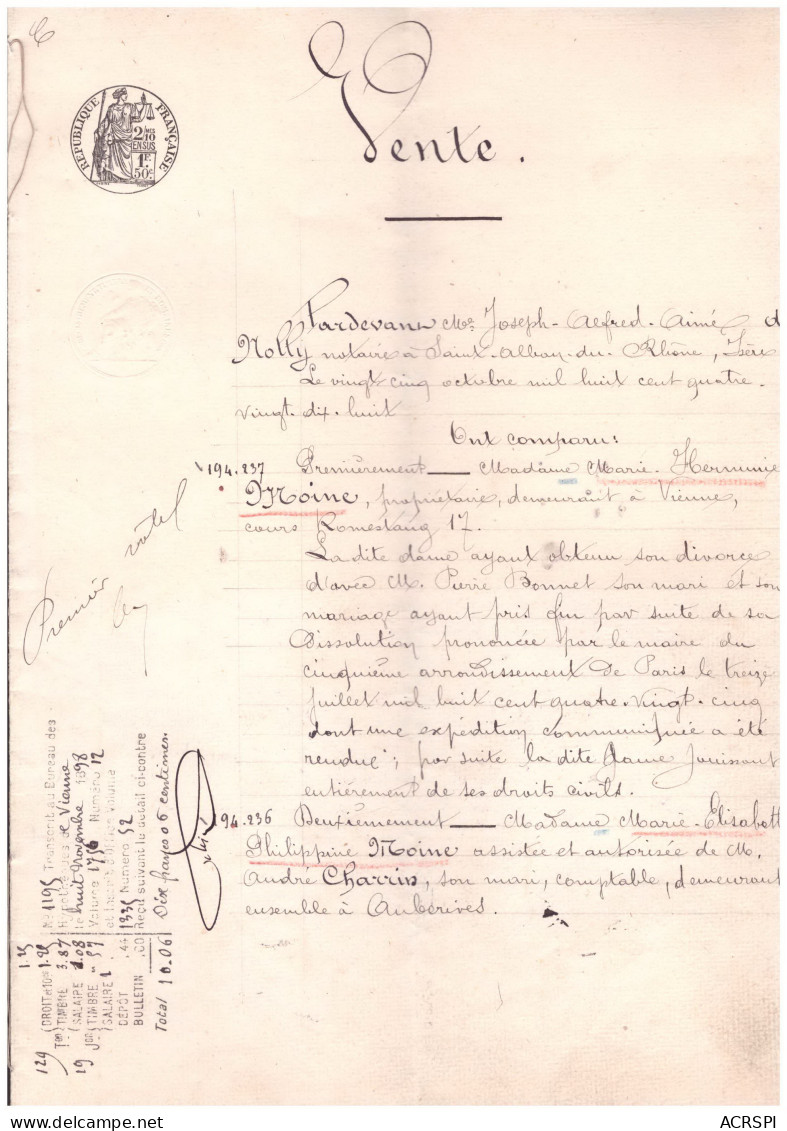 RÉPUBLIQUE FRANÇAISE
2/10 MES
EN SUS
1F.
50c.
Vente.
Pardevant Me Joseph-Alfred-Aimé d
Nolly notaire à Saint-Alban-du-Rhône, Isère
Le vingt cinq octobre mil huit cent quatre-
vingt-dix-huit
Ont comparu:
194.237 Premièrement — Madame Marie-Herminie
Moine, propriétaire, demeurant à Vienne,
cours Romestang 17.
La dite dame ayant obtenu son divorce
d'avec M. Pierre Bonnet son mari et son
mariage ayant pris fin par suite de sa
Dissolution prononcée par le maire du
cinquième arrondissement de Paris le treize
juillet mil huit cent quatre-vingt-cinq
dont une expédition communiquée a été
rendue; par suite la dite dame jouissant
entièrement de ses droits civils.
194.236 Deuxièmement — Madame Marie-Elisabeth
Philippine Moine assistée et autorisée de M.
André Charrin, son mari, comptable, demeurant
ensemble à Auberives.
Premier rôle
No 1195 Transcrit au Bureau des
Hypothèques de Vienne
le huit Novembre 1898
Volume 1756 Numéro 12
et inscrit d'office volume
1335 Numéro 52
Reçu suivant le détail ci-contre
Dix francs 06 centimes.
1.25
DROIT et 10es 1.20
TIMBRE 3.87
SALAIRE 1.08
TIMBRE 37
SALAIRE 1
DÉPOT .44
BULLETIN .00
Total 10.06
129
19
ACRSPI